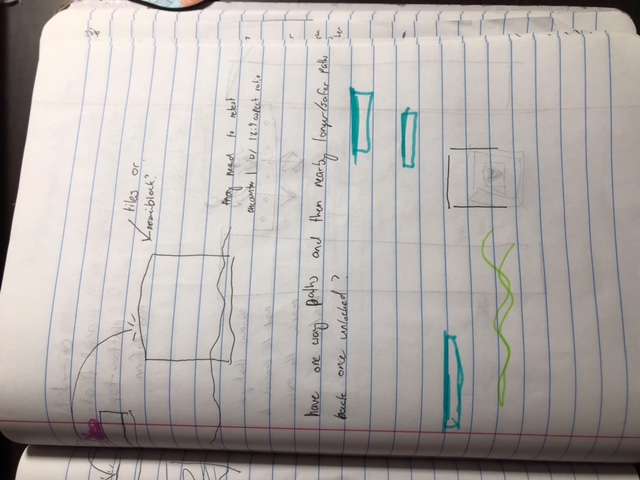 tiles or
block?
May need to retest
encounter 1 w/ 16:9 aspect ratio
have one way paths and then nearby longer/safer paths
back once unlocked?